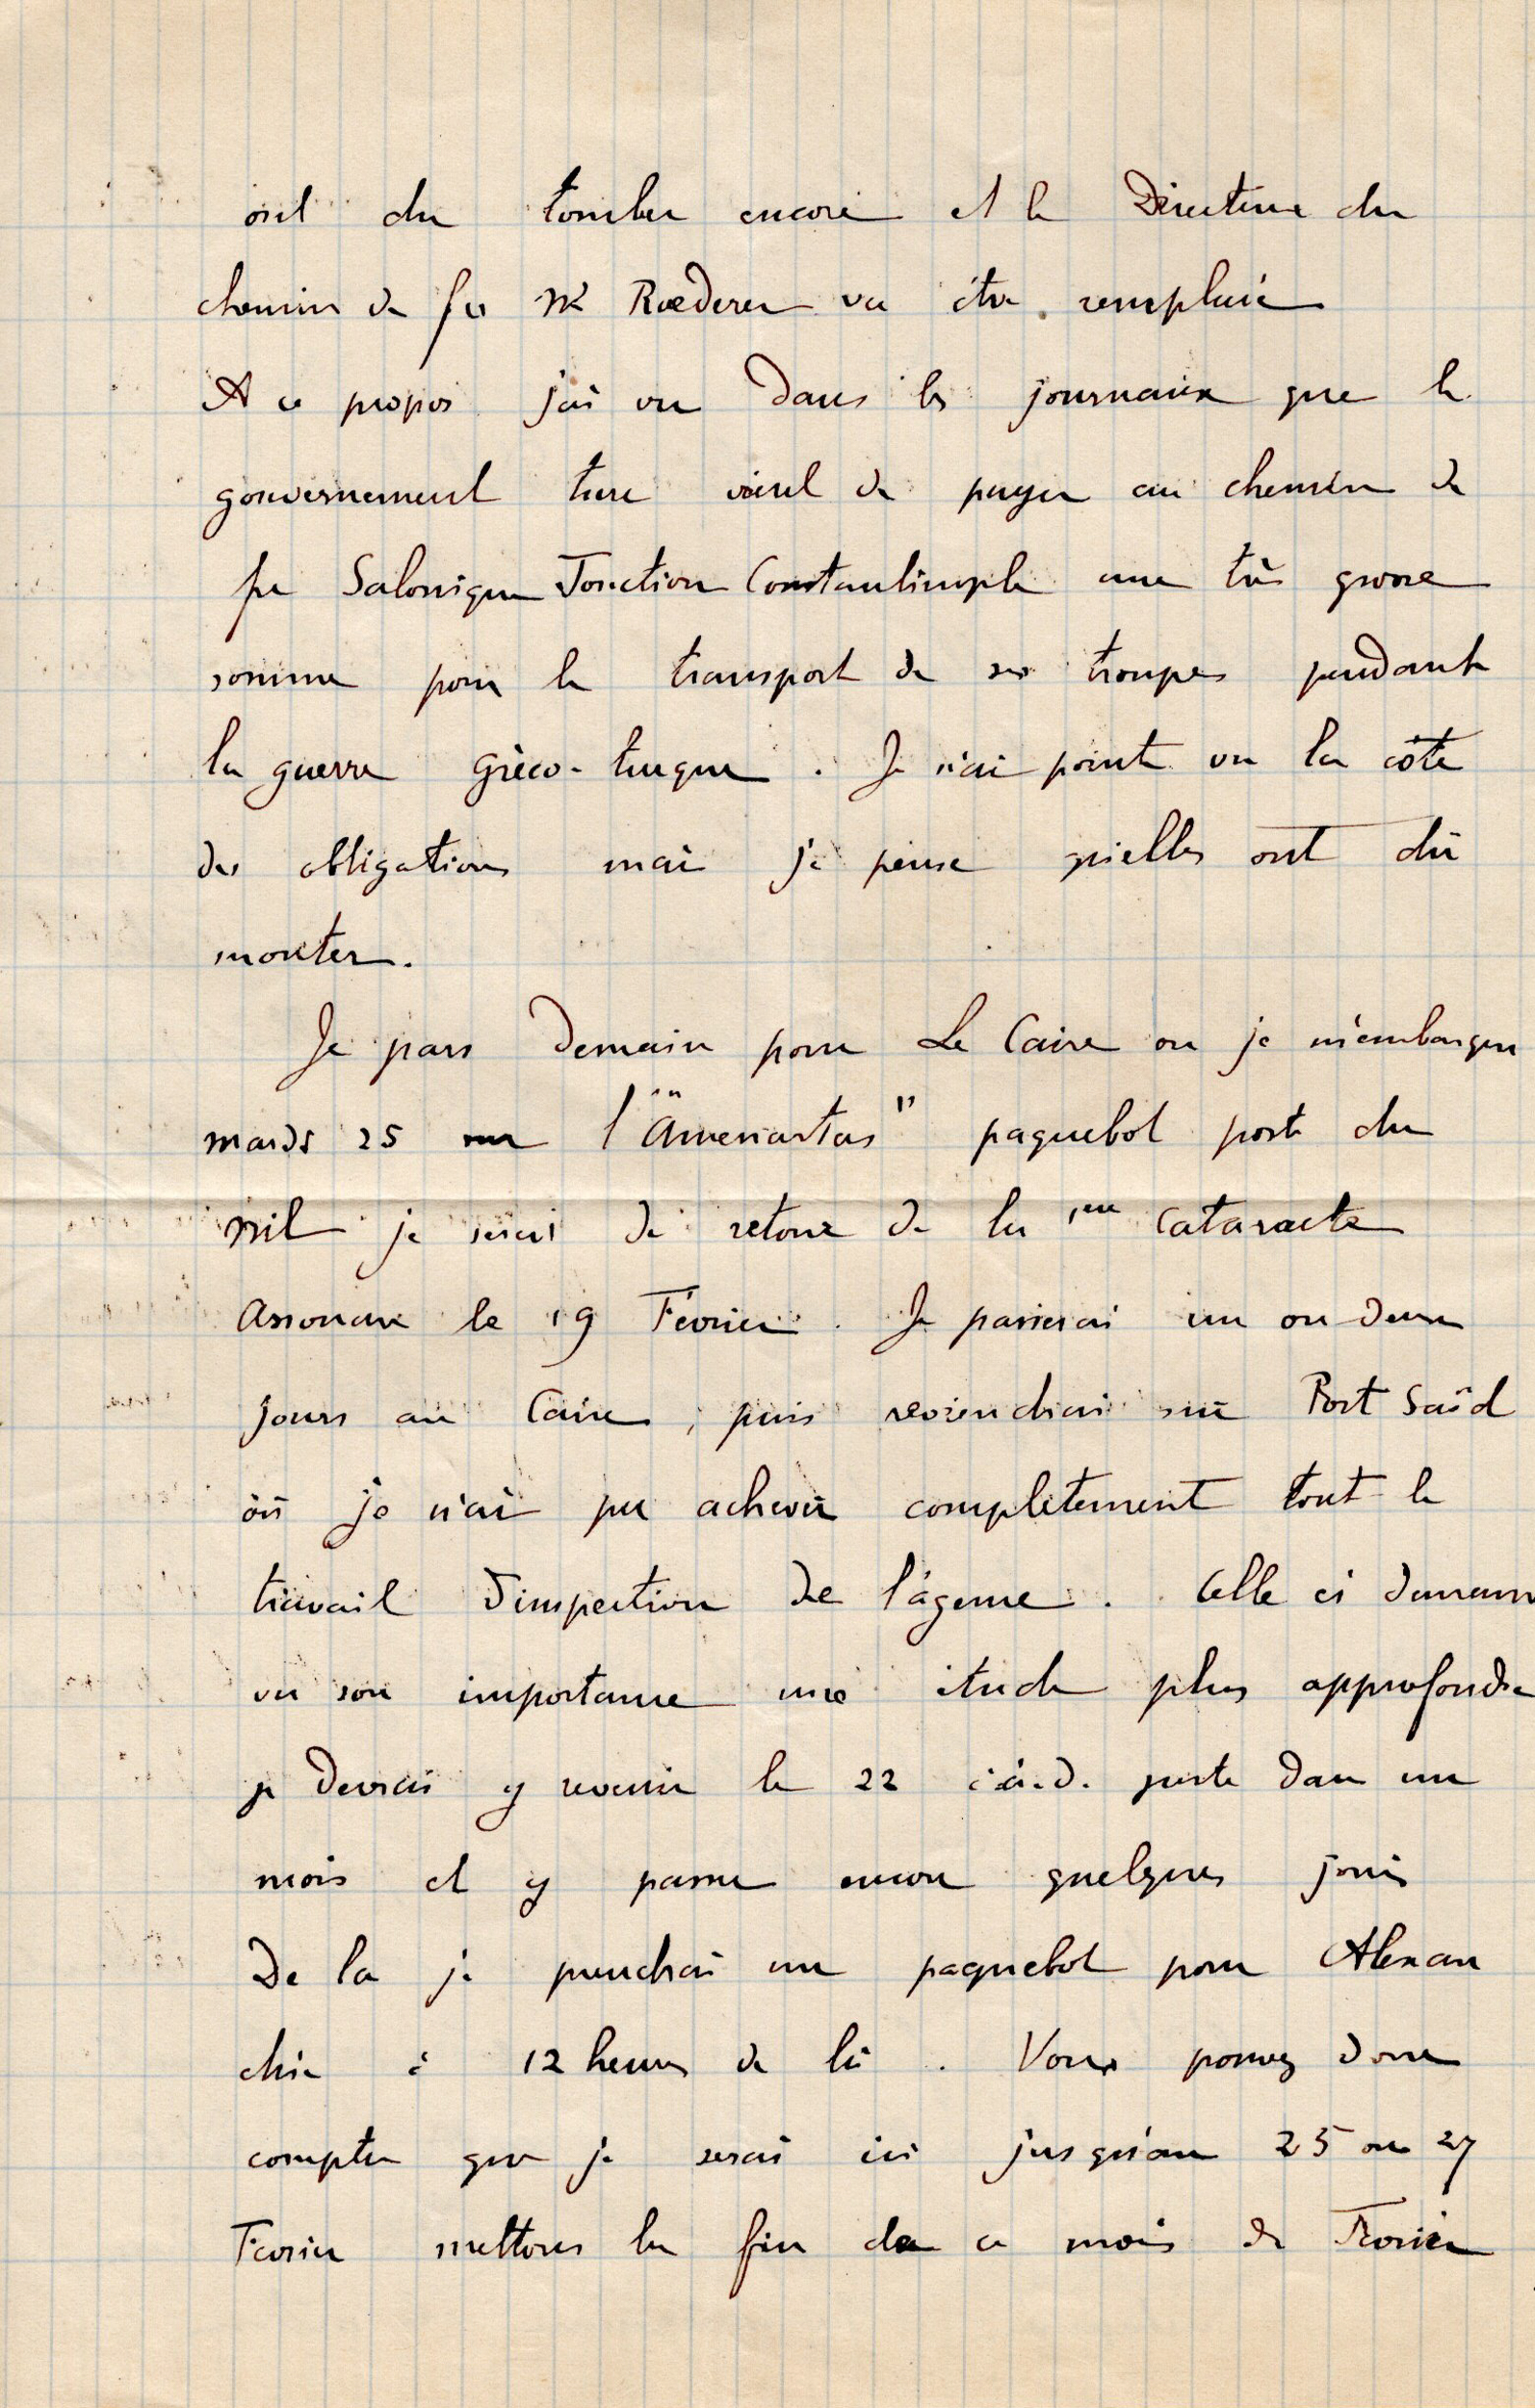 ont du tomber encore et le Directeur du
chemin de fer Mr Rœderer va être remplacé
A ce propos j'ai vu dans les journaux que le
gouvernement turc vient de payer au chemin de
fer Salonique Jonction Constantinople une très grosse
somme pour le transport de ses troupes pendant
la guerre grèco-turque. Je n'ai point vu la côte
des obligations mais je pense qu'elles ont dû
monter.
Je pars demain pour Le Caire ou je m'embarque
mardi 25 sur l'"Amenartas" paquebot poste du
Nil je serai de retour de la 1ere Cataracte
Assouan le 19 Février. Je passerai un ou deux
jours au Caire, puis reviendrai sur Port Saïd
où je n'ai pu achever complètement tout le
travail d'inspection de l'agence. Celle ci
vu son importance une étude plus approfondie
je devrai y revenir le 22 c.à.d. juste dans un
mois et y passer encore quelques jours
De la je prendrai un paquebot pour Alexan
drie à 12 heures de là. Vous pouvez donc
compter que je serai ici jusqu'au 25 ou 27
Février mettons la fin de ce mois de Février